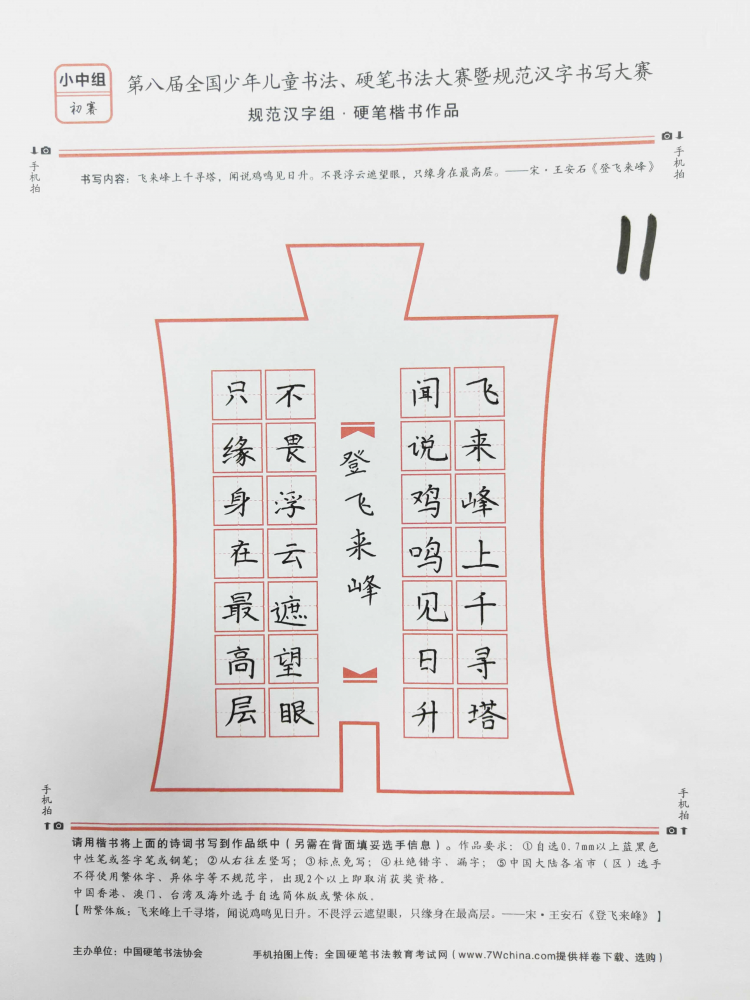 小中组
初赛
第八届全国少年儿童书法、硬笔书法大赛暨规范汉字书写大赛
规范汉字组·硬笔楷书作品
手机拍
手机拍
书写内容：飞来峰上千寻塔，闻说鸡鸣见日升。不畏浮云遮望眼，只缘身在最高层。——宋·王安石《登飞来峰》
11
飞来峰上千寻塔
闻说鸡鸣见日升
登飞来峰
不畏浮云遮望眼
只缘身在最高层
手机拍
手机拍
请用楷书将上面的诗词书写到作品纸中（另需在背面填妥选手信息）。作品要求：①自选0.7mm以上蓝黑色
中性笔或签字笔或钢笔；②从右往左竖写；③标点免写；④杜绝错字、漏字；⑤中国大陆各省市（区）选手
不得使用繁体字、异体字等不规范字，出现2个以上即取消获奖资格.
中国香港、澳门、台湾及海外选手自选简体版或繁体版.
【附繁体版：飞来峰上千寻塔，闻说鸡鸣见日升。不畏浮云遮望眼，只缘身在最高层。——宋·王安石《登飞来峰》】
主办单位：中国硬笔书法协会
手机拍图上传：全国硬笔书法教育考试网（www.7Wchina.com提供样卷下载、选购）